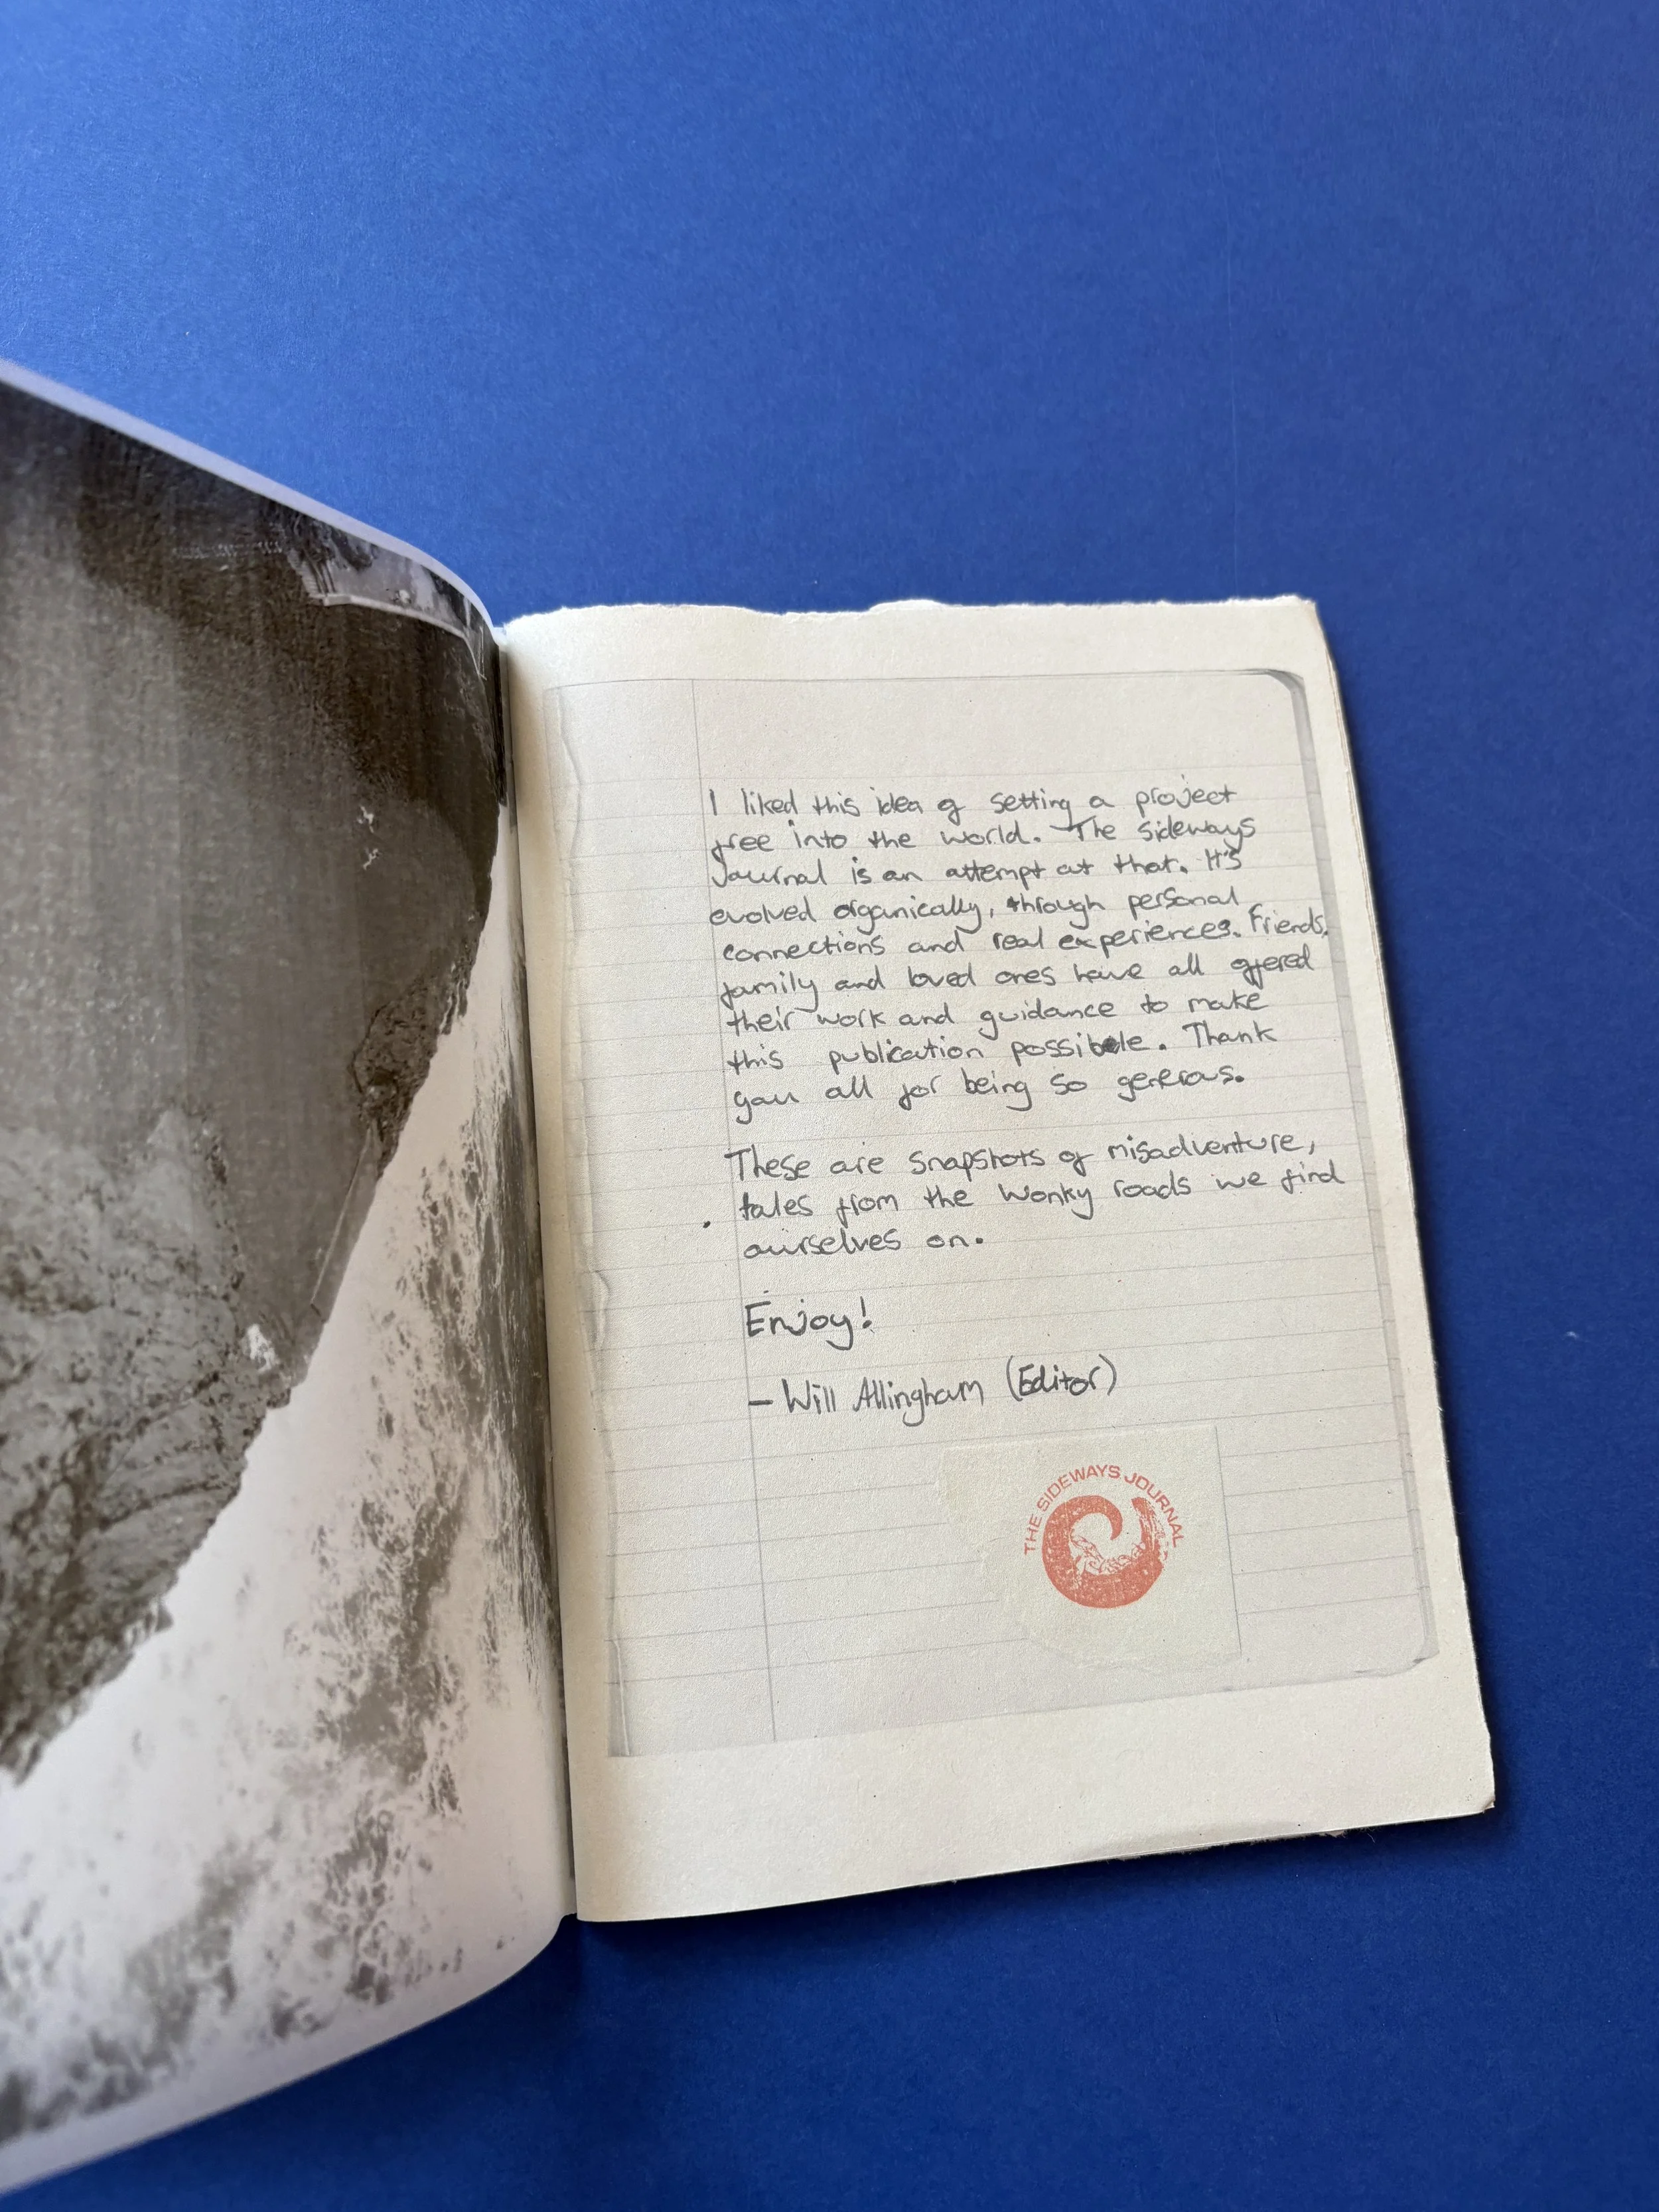 I liked this idea of setting a project
free into the world. The Sideways
Journal is an attempt at that. It's
evolved organically, through personal
connections and real experiences. Friends,
family and loved ones have all offered
their work and guidance to make
this publication possible. Thank
you all for being so generous.
These are snapshots of misadventure,
tales from the wonky roads we find
ourselves on.
Enjoy!
— Will Allingham (Editor)
THE SIDEWAYS JOURNAL